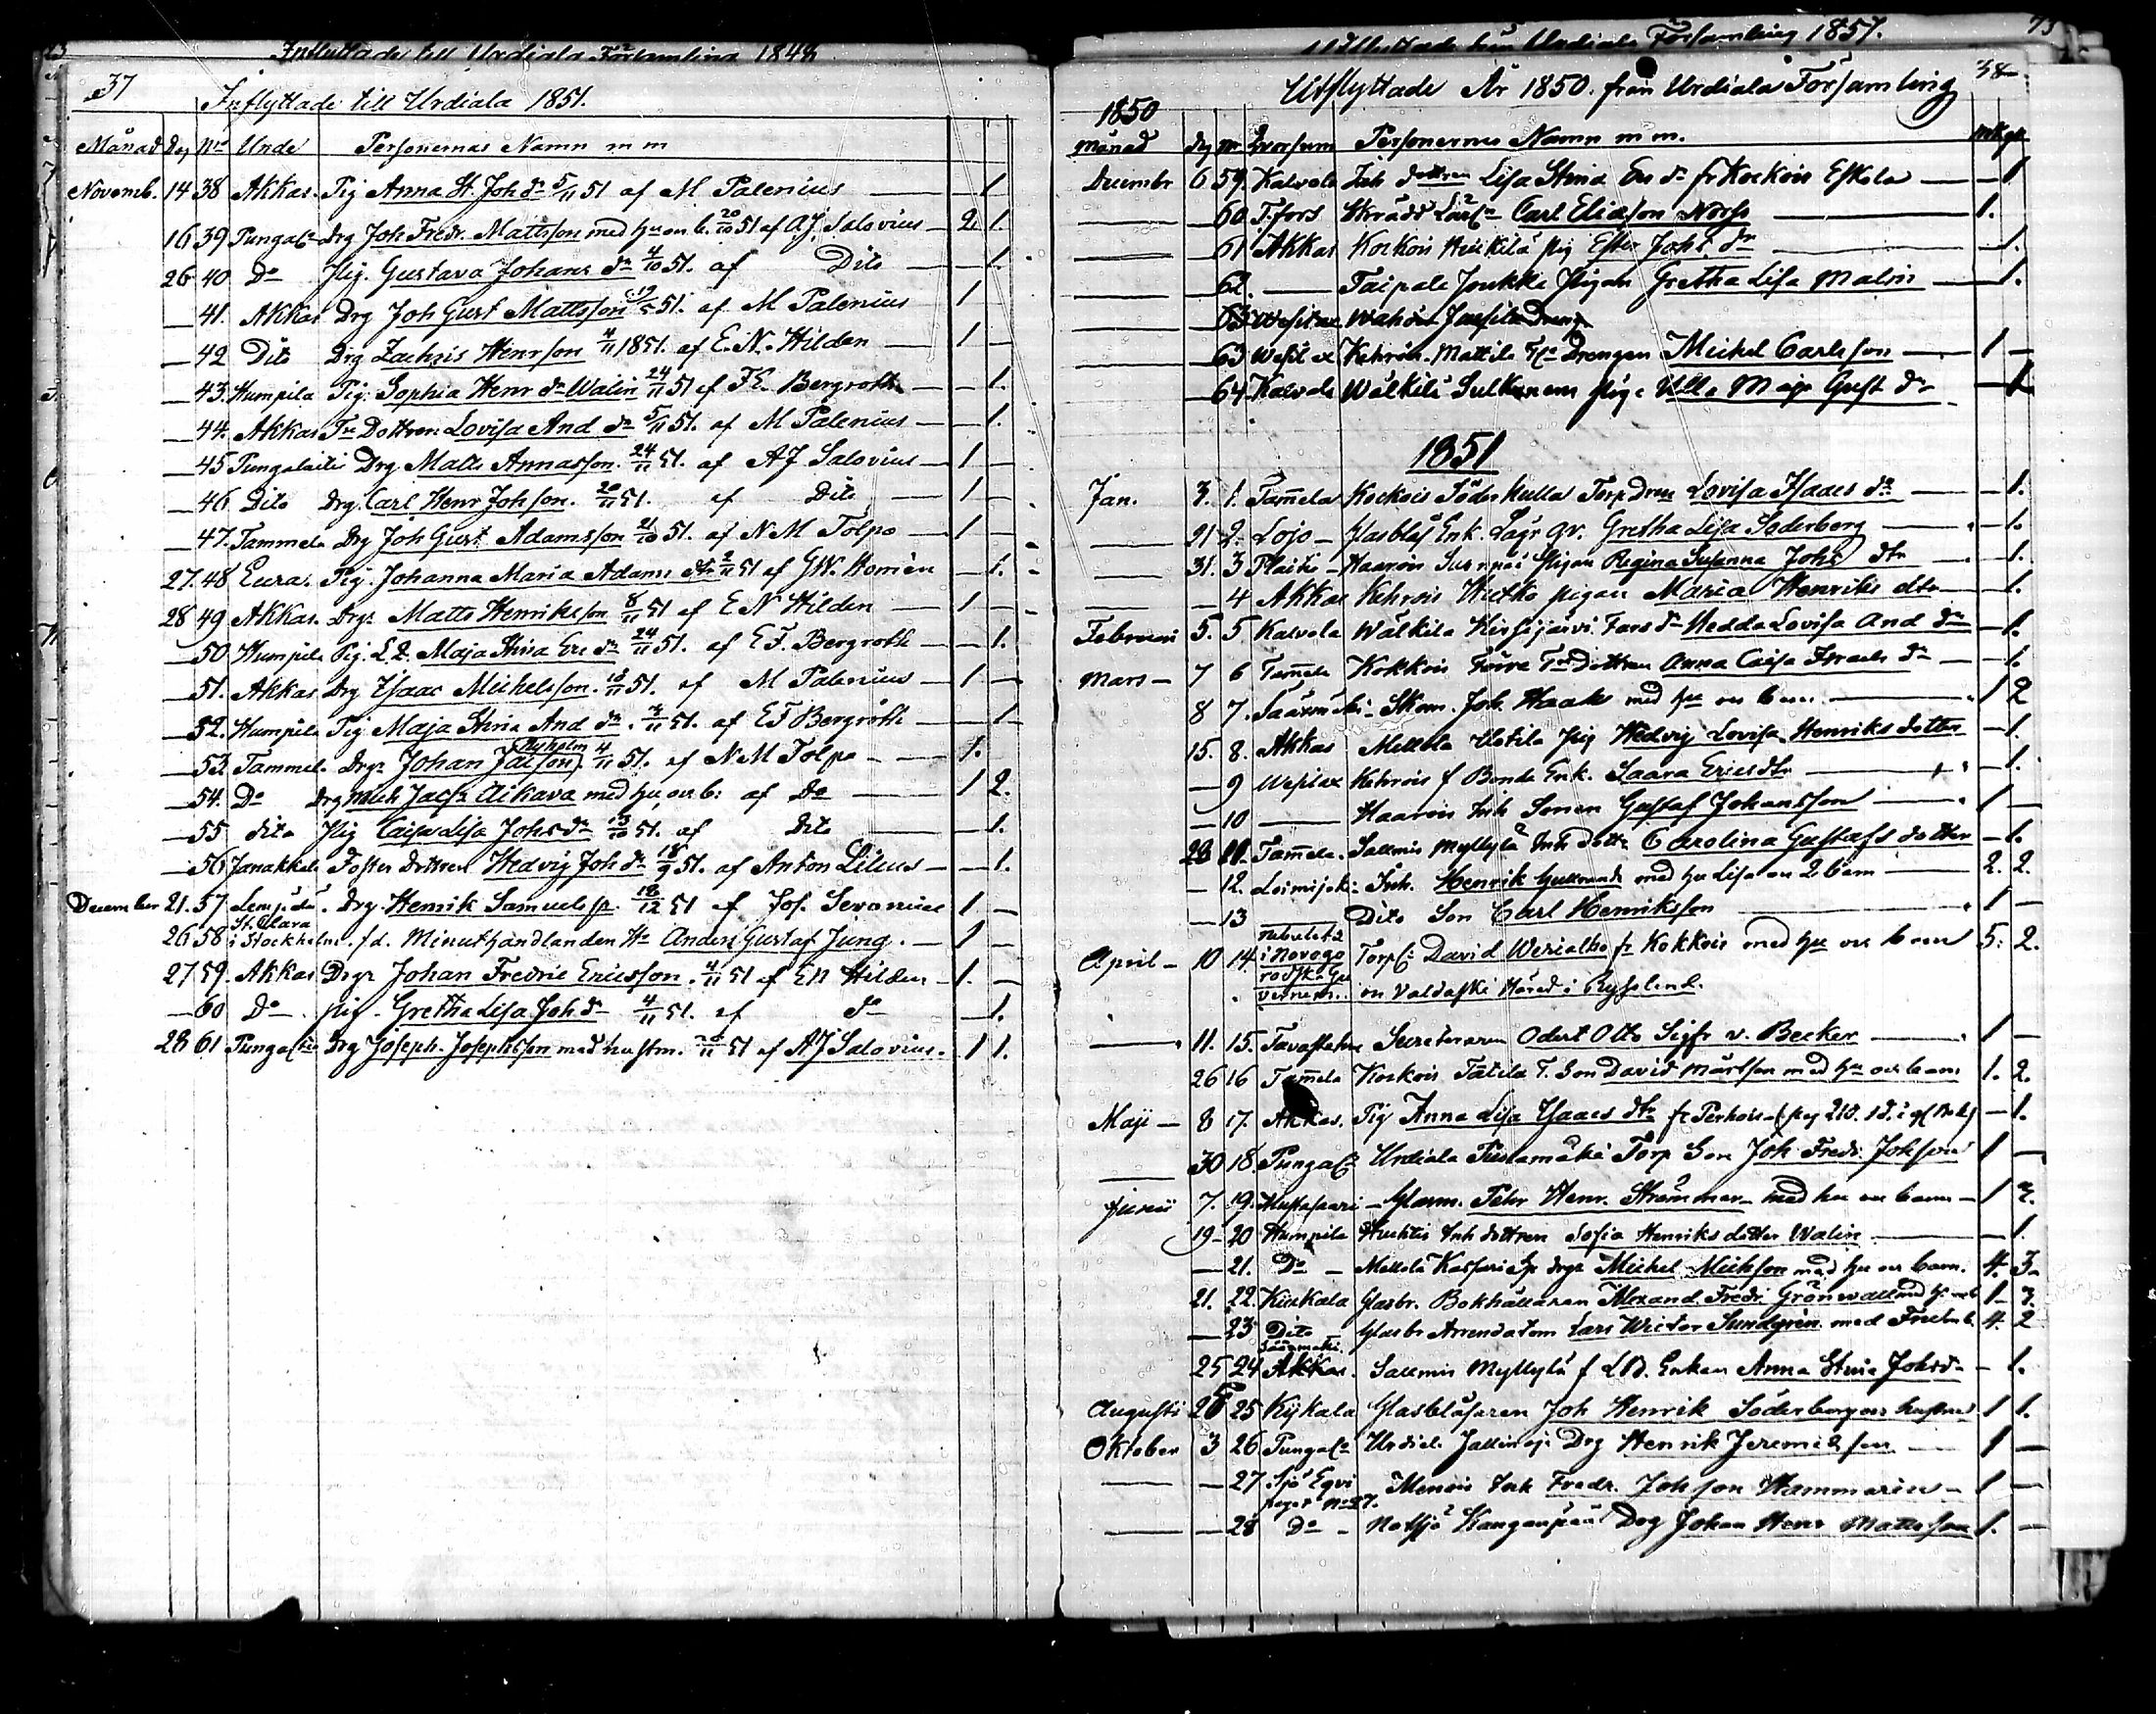 Inflyttade till Urdiala Församling 1848
37
Inflyttade till Urdiala 1851.
Månad Dag Nro Unde Personernas Namn m m
Novemb. 14 38 Akkas. Pig Anna St. Joh dr 5/11 51 af M. Palenius — 1
16 39 Pungal. Drg Joh Fredr. Mattsson med hu o. b. 20/10 51 af A J. Salovius — 2. 1.
26 40 Do Pig. Gustava Johans dr 4/10 51. af Dito — 1.
— 41. Akkas Drg Joh Gust Mattsson 51. af M Palenius 1 —
— 42 Dito Drg Zachris Henrson 4/11 1851. af E. N. Hilden — 1 —
— 43. Humpila Pig. Sophia Henr dr Walin 24/11 51 af F. E. Bergroth — 1.
— 44. Akkas Tr Dottren Lovisa And dr 5/11 51. af M Palenius — 1.
— 45 Pungalaitis Drg Matts Annasson. 24/11 51. af A J Salovius — 1 —
— 46 Dito Drg. Carl Henr Johson. 20/11 51. af Dito — 1 —
— 47. Tammela Drg Joh Gust Adamsson 21/10 51. af N M Tolpo — 1 —
27. 48 Eura. Pig. Johanna Maria Adams dtr 2/11 51 af G W. Homén — 1.
28 49 Akkas. Drgr Matts Henriksson 8/11 51 af E N Hilden — 1 —
— 50 Humpila Pig. Maja Stina Eri dr 24/11 51. af E F. Bergroth — 1.
— 51. Akkas Drg Isaac Michelsson. 51. af M Palenius — 1 —
— 52. Humpila Pig Maja Stina And dr. 51. af E F Bergroth — 1
— 53 Tammel. Drgr Johan Jacson Nyholm 4/11 51. af N M Tolpo — 1.
— 54. Do Drg Mich Jacs: Aikava med hu o b: af Do — 1 2.
— 55 dito Pig Caisa Lisa Johs dr 13/10 51. af Dito — 1.
— 56 Janakkala Foster dottren Hedvig Joh dr 18/9 51. af Anton Lilius — 1.
December 21. 57 Lempäälä. Drg. Henrik Samuels s. 18/12 51 af Jos. Sevonius 1 —
26 58 St. Clara i Stockholm. f d. Minuthandlanden Hr Anders Gustaf Jung. — 1 —
27 59. Akkas Drgr Johan Fredric Ericsson. 4/11 51 af E N Hilden — 1. —
— 60 Do. pig. Gretha Lisa Joh dr 4/11 51. af do — 1.
28 61 Pungal. Drg Joseph. Josephsson med hustru. 51 af A J Salovius. 1 1.
Utflyttade från Urdiala Församling 1857.
73
38
Utflyttade År 1850. från Urdiala Församling
1850
Månad dag nr hvarsum Personernes Namn m m. mk qk
Decembr 6 59. Kalvola Inh dottren Lisa Stina Eri dr fr Kockois Eskola — 1
— 60. T.fors Skrädd Lärl. Carl Eliason Norss — 1.
— 61 Akkas Kockois Heikilä pig Ester Johs dr — 1.
— 62. — Taipale Joukka Pigan Gretha Lisa Malin — 1.
— 63 Wesilax Drengen
— 63 Wesilax Kehrois. Mattila Drengen Michel Carlsson — 1 —
— 64 Kalvola Wälkilä Sulkonens pig. Ulla Maja Gust dr — 1
1851
Jan. 3. 1. Tammela Kockois Söderkulla Torp Dren Lovisa Isaacs dr — 1.
— 21 2. Lojo — Glasblås Enk. Gretha Lisa Söderberg — 1.
— 31. 3 — Haarois Pigan Regina Susanna Johs dtr — 1.
— 4 Akkas Kehrois pigan Maria Henriks dtr — 1.
Februari 5. 5 Kalvola Wälkila Kirsijärvi Hedda Lovisa And dr — 1.
Mars — 7 6 Tammela Kokkois Tr Dottren Anna Caisa Israels dr — 1.
8 7. Sääxmäki — Skom. Joh. Haak med hu o barn — 1 2
15. 8. Akkas Mellola Uotila Pig Hedvig Lovisa Henriks dotter — 1.
— 9 Wesilax Kehrois f Bonde Enk. Saara Erics dtr — 1.
— 10 — Haarois Inh Sonen Gustaf Johansson — 1 —
28 11. Tammela. Salmis Myllylä Inh dottr Carolina Gustafs dotter — 1.
— 12. Loimijoki: Inh. Henrik med hu Lisa o 2 barn — 2. 2.
— 13 — Dito Son Carl Henriksson — 1 —
April — 10 14. i Novogorodska Guvernem. Torp: David Werialbo fr Kokkois med hu o barn 5: 2.
Valdaiski Härad i Ryssland.
— 11. 15. Tavastehus Secreteraren Odert Otto Sigfr v. Becker — 1 —
26 16 Tammela Kockois Tätilä T. Son David Mårtson med hu o barn 1. 2.
Maji — 8 17. Akkas. Pig Anna Lisa Isaacs dtr fr Perhois — 1.
— 30 18 Pungal. Urdiala Torp Son Joh Fredr. Johsson 1 —
Junii 7. 19. Mustasaari — Glasm. Pehr Henr. Strömmer med hu o barn — 1 2.
19 — 20 Humpila Huhtis Inh dottren Sofia Henriks dotter Walin — 1.
— 21. Do — Mellola Kaspari drgr Michel Michson med hu o barn. 4. 3.
21. 22. Kiskala Glasbr. Bokhållaren Alexand. Fredr. Grönvall med 1. 2.
— 23 Dito Glasbr Arrendatorn Lars Wictor Sundgrén. med Fru 4. 2
25 24 Akkas. Sääxmäki Salmis Myllylä f Enkan Anna Stina Johs dr — 1.
Augusti 26 25 Kijkala Glasblåsaren Joh Henrik Söderberg o hustru 1 1.
Oktober 3 26 Pungal. Urdiala Drg Henrik Jeremiasson — 1 —
— 27 Sjö Eqvipaget No 27. Menois Inh Fredr. Johsson Hammarin — 1 —
— 28 Do — Notsjö Kanganpää Drg Johan Henr Mattsson 1. —